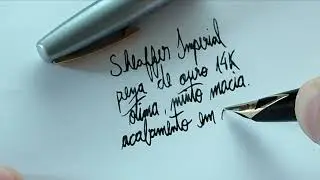 Sheaffer Imperial
pena de ouro 14K
ótima, muito macia.
acabamento em